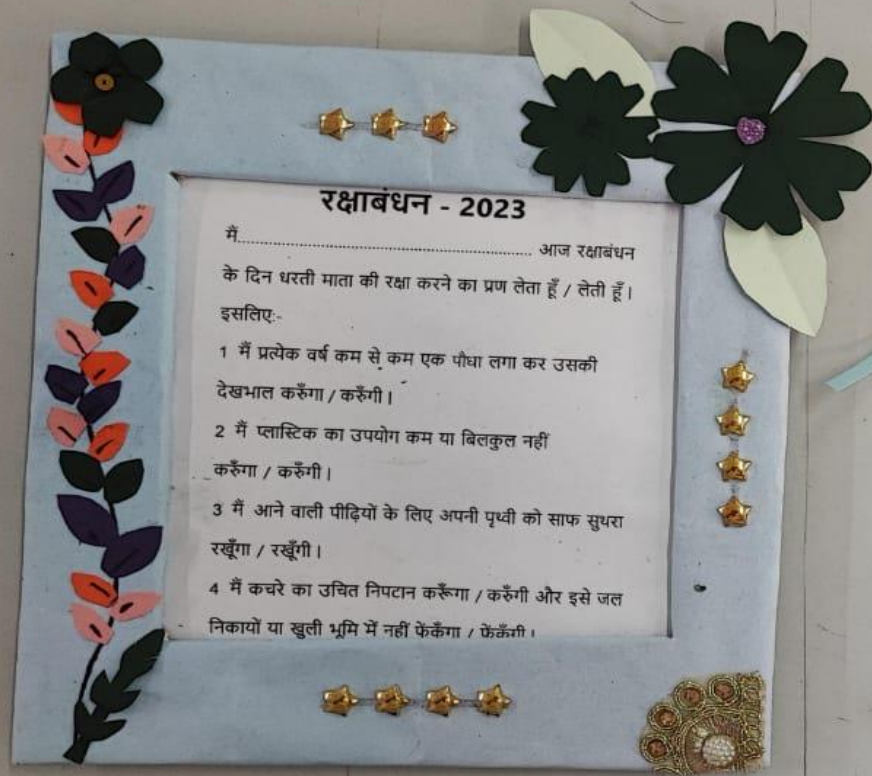 रक्षाबंधन - 2023
मैं.................................................................. आज रक्षाबंधन
के दिन धरती माता की रक्षा करने का प्रण लेता हूँ / लेती हूँ।
इसलिए:-
1 मैं प्रत्येक वर्ष कम से कम एक पौधा लगा कर उसकी
देखभाल करुँगा / करुँगी।
2 मैं प्लास्टिक का उपयोग कम या बिलकुल नहीं
करुँगा / करुँगी।
3 मैं आने वाली पीढ़ियों के लिए अपनी पृथ्वी को साफ सुथरा
रखूँगा / रखूँगी।
4 मैं कचरे का उचित निपटान करूँगा / करुँगी और इसे जल
निकायों या खुली भूमि में नहीं फेंकूँगा / फेंकूँगी।